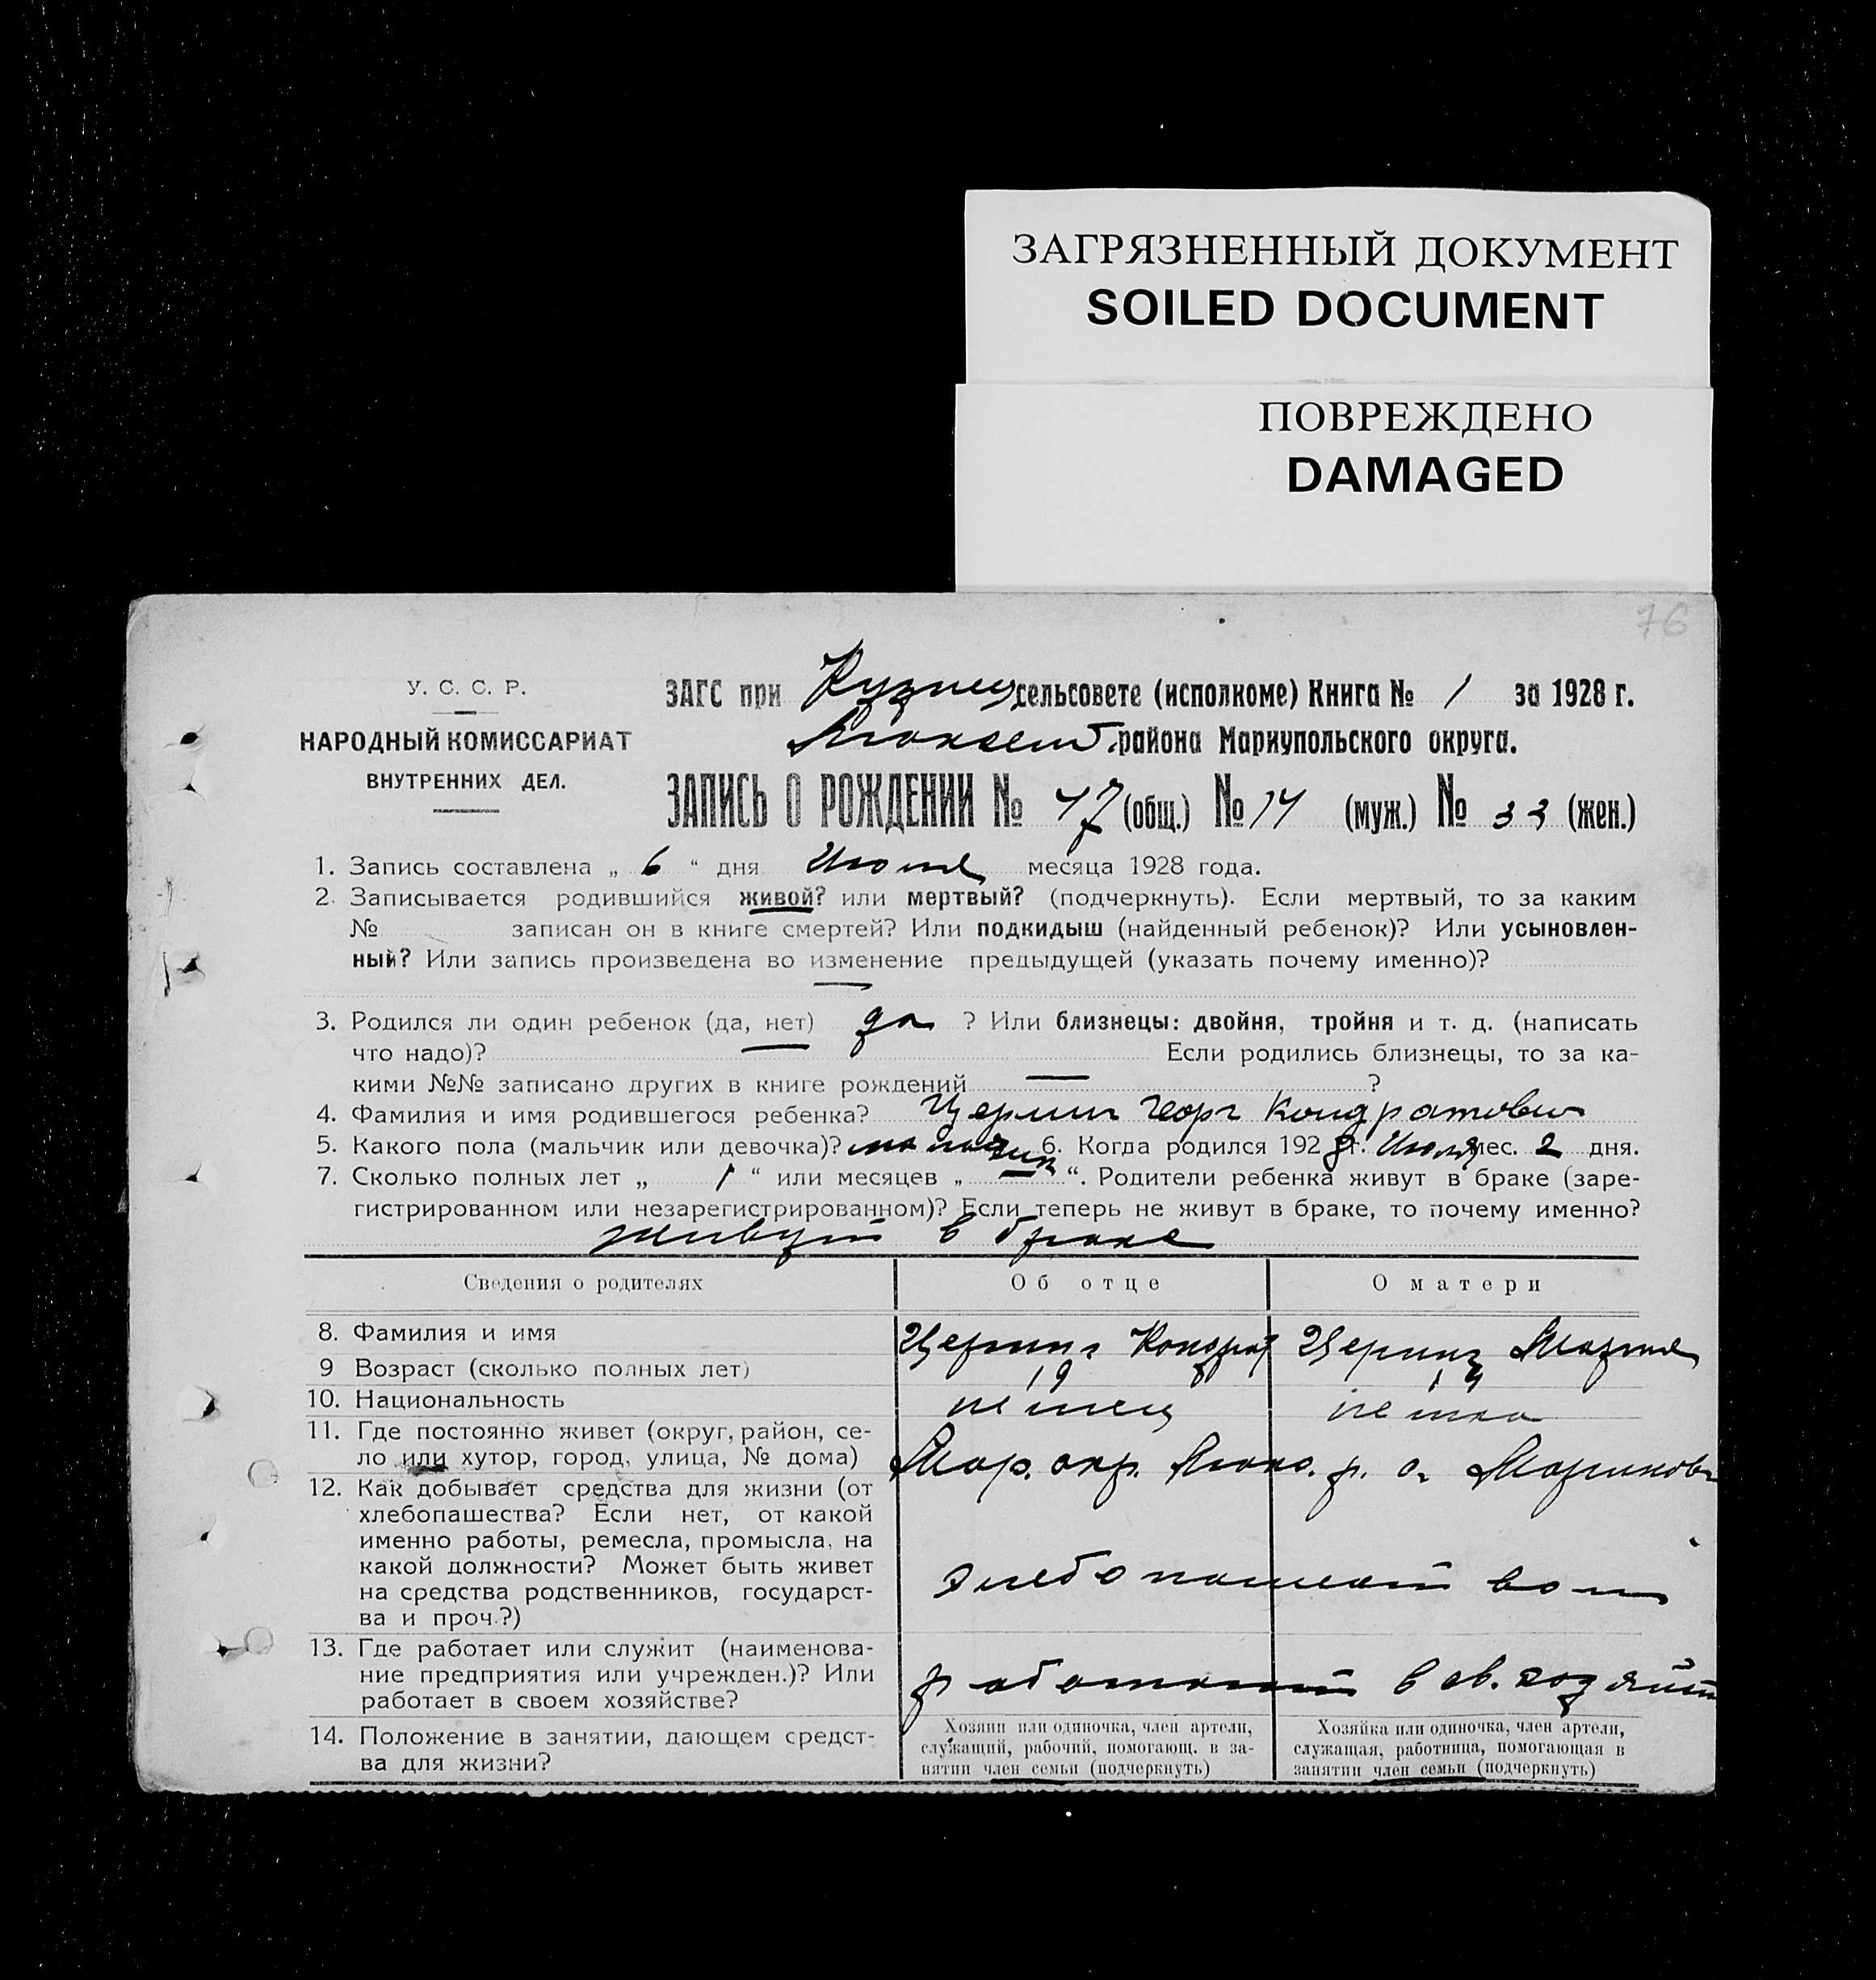 ЗАГРЯЗНЕННЫЙ ДОКУМЕНТ
SOILED DOCUMENT
ПОВРЕЖДЕНО
DAMAGED
76
У. С. С. Р.
НАРОДНЫЙ КОМИССАРИАТ
ВНУТРЕННИХ ДЕЛ.
ЗАГС при Кузнец сельсовете (исполкоме) Книга № 1 за 1928 г.
района Мариупольского округа.
ЗАПИСЬ О РОЖДЕНИИ № 47 (общ.) № 14 (муж.) № 33 (жен.)
1. Запись составлена „ 6 “ дня Июля месяца 1928 года.
2. Записывается родившийся живой? или мертвый? (подчеркнуть). Если мертвый, то за каким
№ записан он в книге смертей? Или подкидыш (найденный ребенок)? Или усыновлен-
ный? Или запись произведена во изменение предыдущей (указать почему именно)?
3. Родился ли один ребенок (да, нет) да ? Или близнецы: двойня, тройня и т. д. (написать
что надо)? Если родились близнецы, то за ка-
кими №№ записано других в книге рождений — ?
4. Фамилия и имя родившегося ребенка? Церинг Георг Кондратович
5. Какого пола (мальчик или девочка)? мальчик 6. Когда родился 1928 г. Июля мес. 2 дня.
7. Сколько полных лет „ 1 “ или месяцев „ — “. Родители ребенка живут в браке (заре-
гистрированном или незарегистрированном)? Если теперь не живут в браке, то почему именно?
живут в браке
Сведения о родителях Об отце О матери
8. Фамилия и имя Церинг Кондрат Церинг Мария
9 Возраст (сколько полных лет) 19
10. Национальность немец немка
11. Где постоянно живет (округ, район, се-
ло или хутор, город, улица, № дома) Мар. окр. Люкс. р. с.
12. Как добывает средства для жизни (от
хлебопашества? Если нет, от какой
именно работы, ремесла, промысла, на
какой должности? Может быть живет
на средства родственников, государст-
ва и проч.?)
хлебопашеством
13. Где работает или служит (наименова-
ние предприятия или учрежден.)? Или
работает в своем хозяйстве?
работают в св. хозяйст
14. Положение в занятии, дающем средст-
ва для жизни?
Хозяин или одиночка, член артели,
служащий, рабочий, помогающ. в за-
нятии член семьи (подчеркнуть)
Хозяйка или одиночка, член артели,
служащая, работница, помогающая в
занятии член семьи (подчеркнуть)